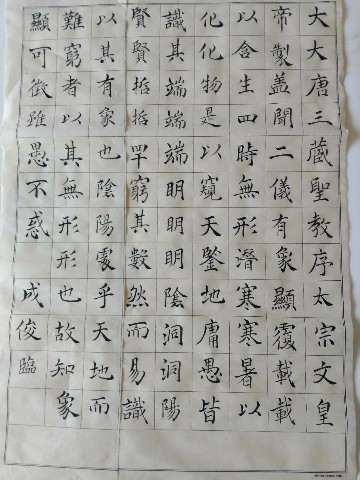 大大唐三藏聖教序太宗文皇
帝製盖聞二儀有象顯覆載載
以含生四時無形潛寒寒暑以
化化物是以窺天鑒地庸愚皆
識其端端端明明明陰洞洞陽
賢賢哲哲罕窮其數然而易識
以其有象也陰陽處乎天地而
難窮者以其無形形也故知象
顯可徵雖愚不惑
成俊臨